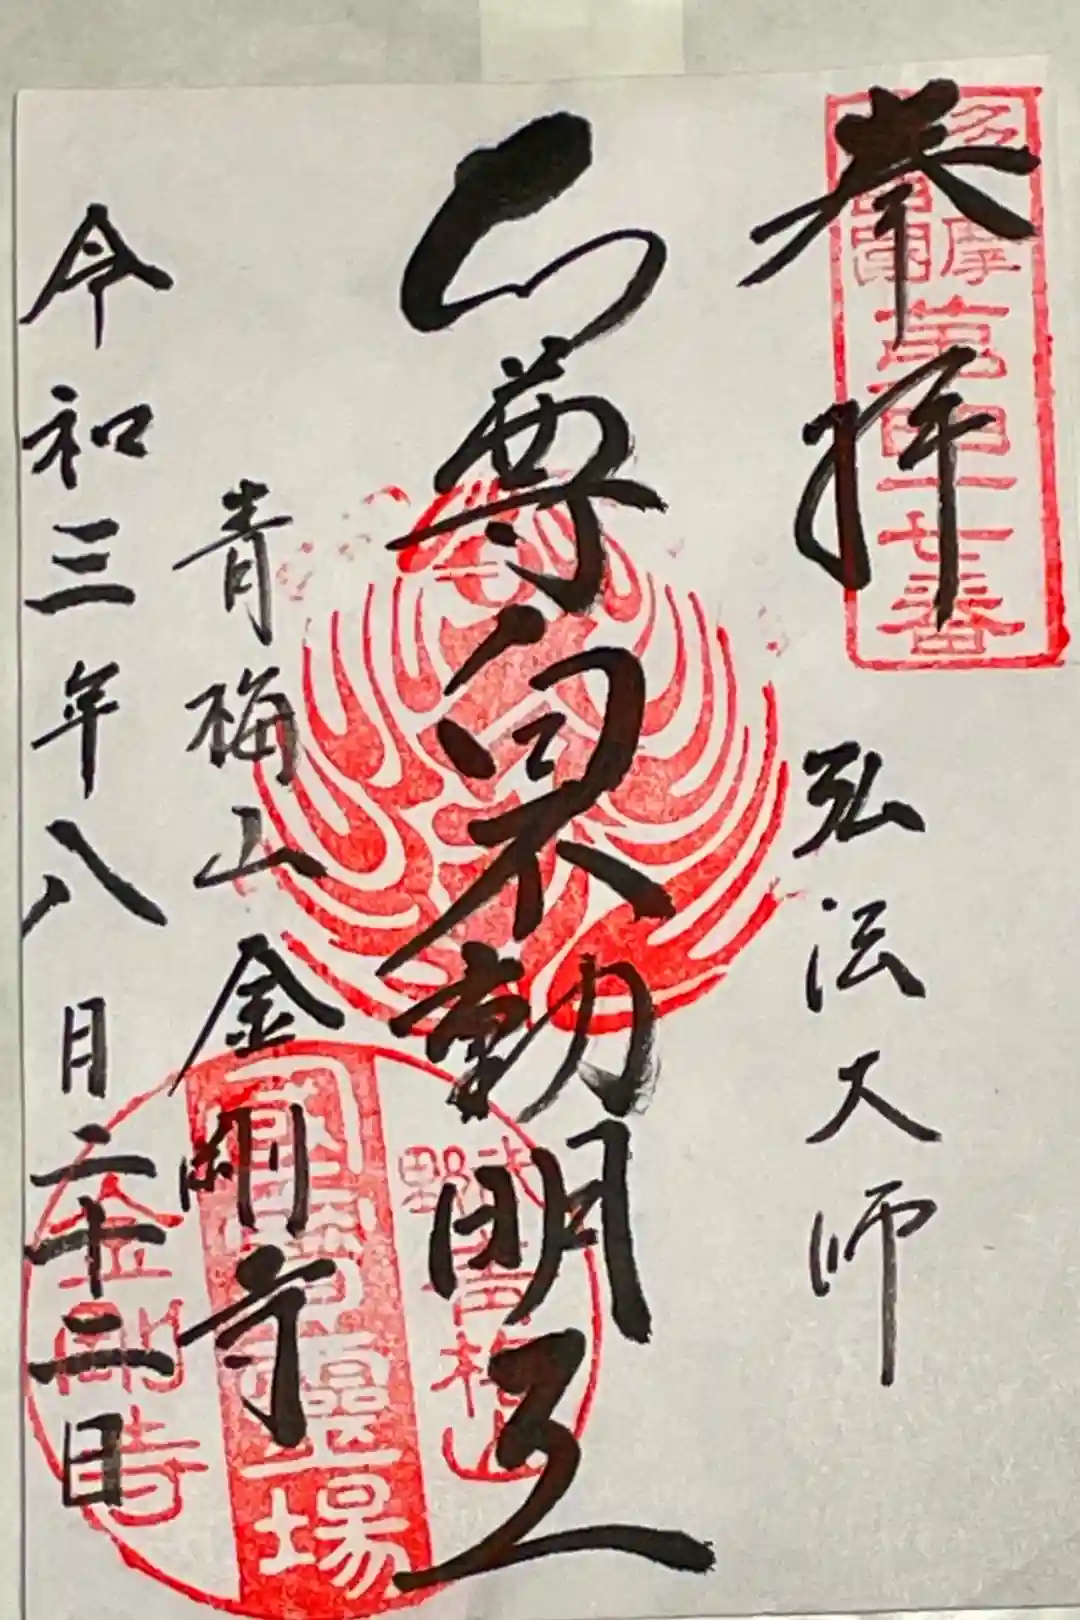 多摩四國
第四十七番
奉拝
弘法大師
本尊白不動明王
青梅山
靈場
金剛寺
青梅山金剛寺
令和三年八月二十二日